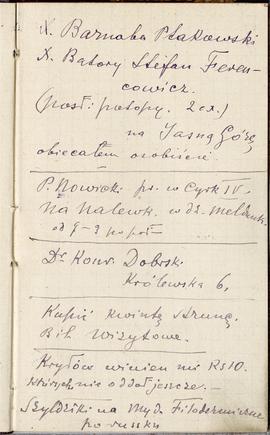 X. Barnaba Ptakowski
X. Batory Stefan Feren-
cowicz.
(posł: 2 ex.)
na Jasną Górę
obiecałem osobiście
P. Nowick. pr. w Cyrk IV.
na Nalewk. w dz. meldunk.
od 8-9 po poł-
Dr Konr. Dobrski
Królewska 6,
Kupić kwintę strunę.
Bil. Wizytowe.
Kryłów winien mi Rs10.
których nie oddał jeszcze. -
Szyldziki na Myd. Filodermiczne
po rusku